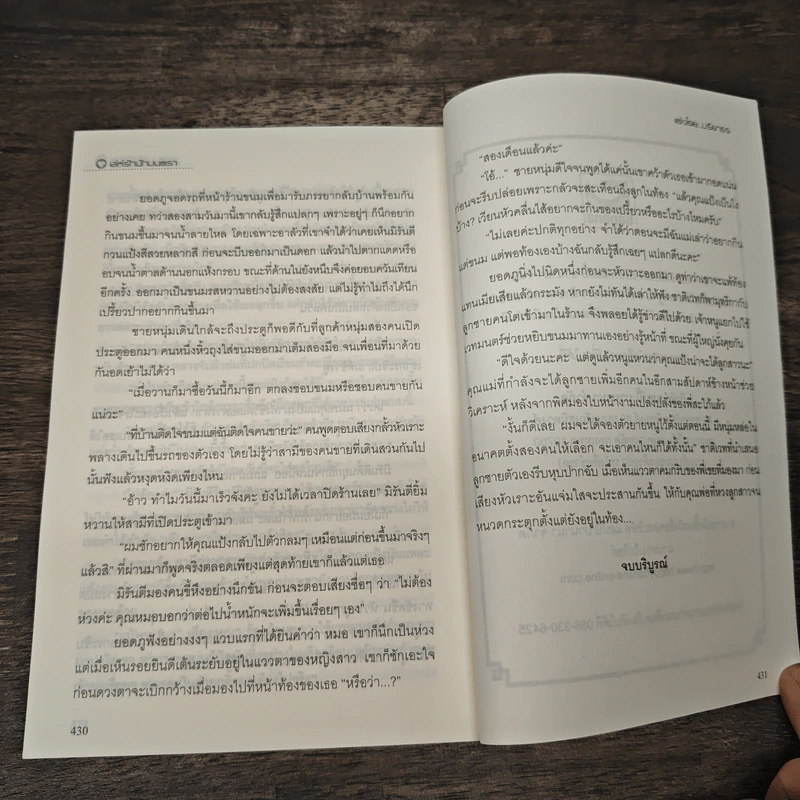 เล่ห์รักบ้านมนตรา
ยอดภูจอดรถที่หน้าร้านขนมเพื่อมารับภรรยากลับบ้านพร้อมกัน
อย่างเคย ทว่าสองสามวันมานี้เขากลับรู้สึกแปลกๆ เพราะอยู่ๆ ก็นึกอยาก
กินขนมขึ้นมาจนน้ำลายไหล โดยเฉพาะอาลัวที่เขาจำได้ว่าเคยเห็นมิรันตี
กวนแป้งสีสวยหลากสี ก่อนจะบีบออกมาเป็นดอก แล้วนำไปตากแดดหรือ
อบจนน้ำตาลด้านนอกแห้งกรอบ ขณะที่ด้านในยังหนึบจึงค่อยอบควันเทียน
อีกครั้ง ออกมาเป็นขนมรสหวานอย่างไม่ต้องสงสัย แต่ไม่รู้ทำไมถึงได้นึก
เปรี้ยวปากอยากกินขึ้นมา
ชายหนุ่มเดินใกล้จะถึงประตูก็พอดีกับที่ลูกค้าหนุ่มสองคนเปิด
ประตูออกมา คนหนึ่งหิ้วถุงใส่ขนมออกมาเต็มสองมือ จนเพื่อนที่มาด้วย
กันอดเย้าไม่ได้ว่า
“เมื่อวานก็มาซื้อวันนี้ก็มาอีก ตกลงชอบขนมหรือชอบคนขายกัน
แน่วะ”
“ที่บ้านติดใจขนมแต่ฉันติดใจคนขายว่ะ” คนพูดตอบเสียงกลั้วหัวเราะ
พลางเดินไปขึ้นรถของตัวเอง โดยไม่รู้ว่าสามีของคนขายที่เดินสวนกันไป
นั้นฟังแล้วหงุดหงิดเพียงไหน
“อ้าว ทำไมวันนี้มาเร็วจังคะ ยังไม่ได้เวลาปิดร้านเลย” มิรันตียิ้ม
หวานให้สามีที่เปิดประตูเข้ามา
“ผมชักอยากให้คุณแป้งกลับไปตัวกลมๆ เหมือนแต่ก่อนขึ้นมาจริงๆ
แล้วสิ” ที่ผ่านมาก็พูดจริงตลอดเพียงแต่สุดท้ายเขาก็แล้วแต่เธอ
มิรันตีมองคนขี้หึงอย่างนึกขัน ก่อนจะตอบเสียงซื่อๆ ว่า “ไม่ต้อง
ห่วงค่ะ คุณหมอบอกว่าต่อไปน้ำหนักจะเพิ่มขึ้นเรื่อยๆ เอง”
ยอดภูฟังอย่างงงๆ แวบแรกที่ได้ยินคำว่า หมอ เขาก็นึกเป็นห่วง
แต่เมื่อเห็นรอยยินดีเต้นระยับอยู่ในแววตาของหญิงสาว เขาก็ชักเอะใจ
ก่อนดวงตาจะเบิกกว้างเมื่อมองไปที่หน้าท้องของเธอ “หรือว่า...?”
430
“สองเดือนแล้วค่ะ”
“โอ้...” ชายหนุ่มดีใจจนพูดได้แค่นั้นเขาคว้าตัวเธอเข้ามากอดแน่น
ก่อนจะรีบปล่อยเพราะกลัวจะสะเทือนถึงลูกในท้อง “แล้วคุณแป้งเป็นไง
บ้าง? เวียนหัวคลื่นไส้อยากจะกินของเปรี้ยวหรืออะไรบ้างไหมครับ”
“ไม่เลยค่ะปกติทุกอย่าง จำได้ว่าตอนจะมีฉันแม่เล่าว่าอยากกิน
แต่ขนม แต่พอท้องเองบ้างฉันกลับรู้สึกเฉยๆ แปลกดีนะคะ”
ยอดภูนิ่งไปนิดหนึ่งก่อนจะหัวเราะออกมา ดูท่าว่าเขาจะแพ้ท้อง
แทนเมียเสียแล้วกระมัง หากยังไม่ทันได้เล่าให้ฟัง ชาติเวทก็พามุตริกากับ
ลูกชายคนโตเข้ามาในร้าน จึงพลอยได้รู้ข่าวดีไปด้วย เจ้าหนูแยกไปใช้
เวทมนตร์ช่วยหยิบขนมมาทานเองอย่างรู้หน้าที่ ขณะที่ผู้ใหญ่นั่งคุยกัน
“ดีใจด้วยนะคะ แต่ดูแล้วหนูแหวนว่าคุณแป้งน่าจะได้ลูกสาวนะ”
คุณแม่ที่กำลังจะได้ลูกชายเพิ่มอีกคนในอีกสามสัปดาห์ข้างหน้าช่วย
วิเคราะห์ หลังจากพิศมองใบหน้างามเปล่งปลั่งของพี่สะใภ้แล้ว
“งั้นก็ดีเลย ผมจะได้จองตัวยายหนูไว้ตั้งแต่ตอนนี้ มีหนุ่มหล่อใน
อนาคตตั้งสองคนให้เลือก จะเอาคนไหนก็ได้ทั้งนั้น” ชาติเวทที่นำเสนอ
ลูกชายตัวเองรีบหุบปากฉับ เมื่อเห็นแววตาคมกริบของพี่เขยที่มองมา ก่อน
เสียงหัวเราะอันแจ่มใสจะประสานกันขึ้น ให้กับคุณพ่อที่หวงลูกสาวจน
หนวดกระตุกตั้งแต่ยังอยู่ในท้อง...
จบบริบูรณ์
431